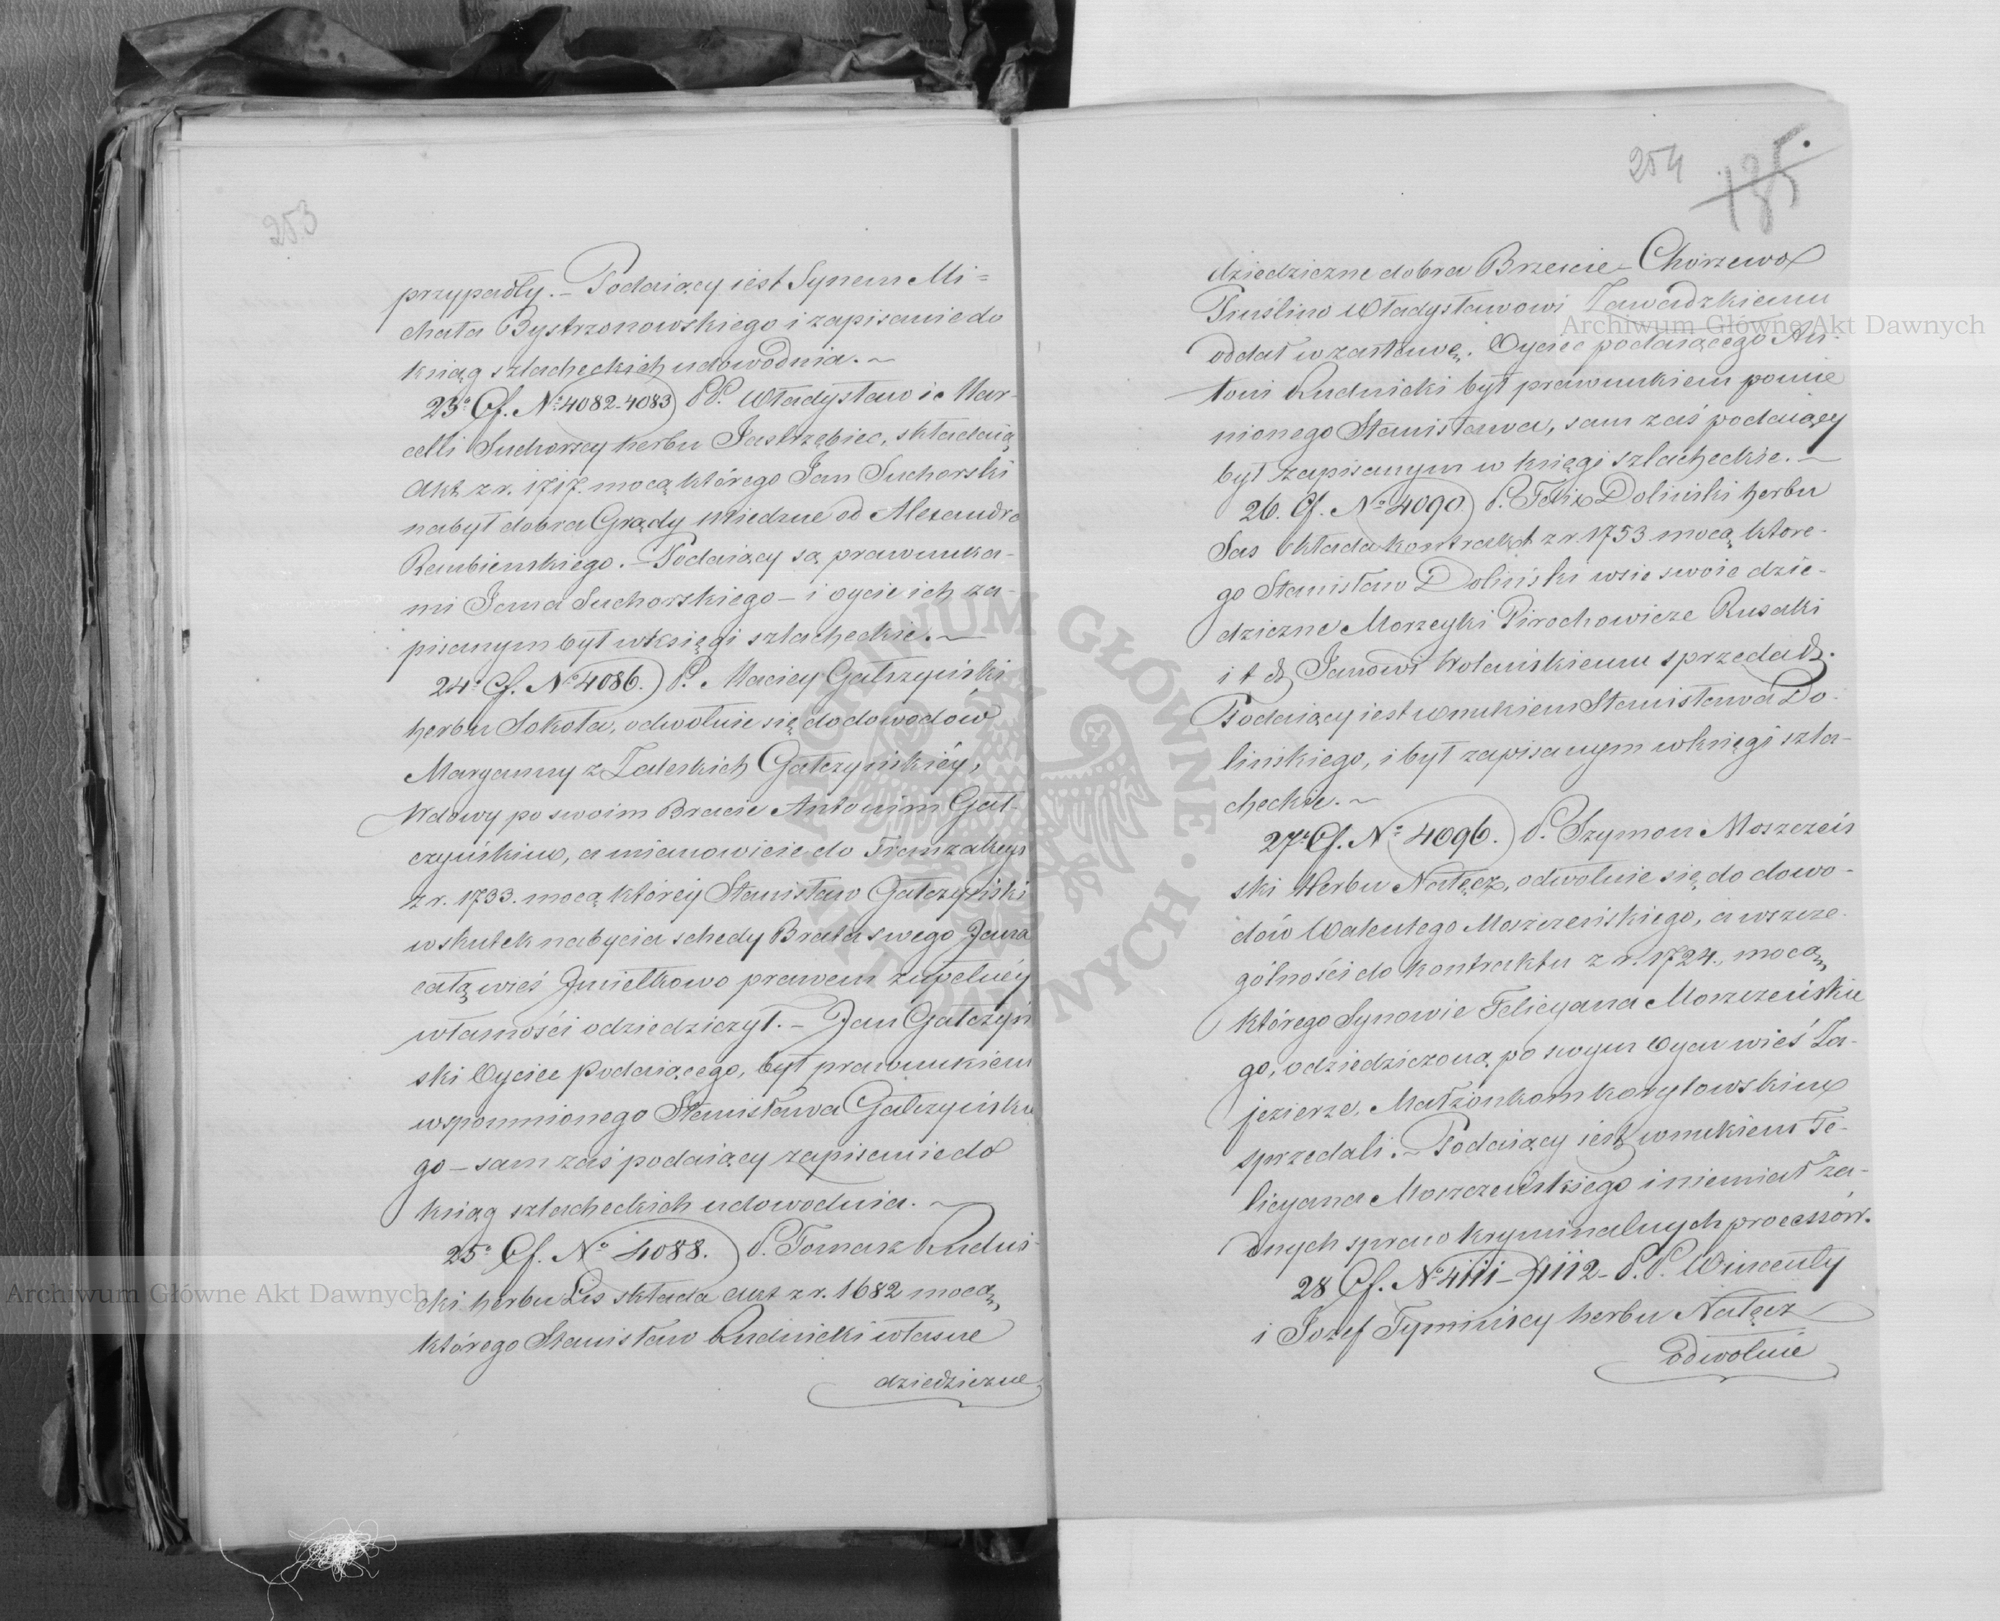 253
przypadły. – Podaiący iest Synem Mi=
chała Bystrzonowskiego i zapisanie do
ksiąg szlacheckich udowodnia. ~
23° Cf. N° 4082-4083) PP. Władysław i Mar-
celli Suchorscy herbu Jastrzębiec, składaią
Akt z r. 1717. mocą którego Jan Suchorski
nabył dobra Grądy Miedzne od Alexandra
Rembienskiego. – Podaiący są prawnuka-
mi Jana Suchorskiego – i oyciec ich za-
pisanym był w księgi szlacheckie. ~
24° Cf. N° 4086.) P. Maciey Gałczyński
herbu Sokoła, odwołuie się do dowodów
Maryanny z Zaleskich Gałczyńskiéy,
Wdowy po swoim Bracie Antonim Gał-
czyńskim, a mianowicie do Tranzakcyi
z r. 1733. mocą któréy Stanisław Gałczyński
w skutek nabycia schedy Brata swego Jana
całą wieś Jmiełkowo prawem zupełnéy
własności odziedziczył. – Jan Gałczyń
ski Oyciec podaiącego, był prawnukiem
wspomnionego Stanisława Gałczyńskie
go – sam zaś podaiący zapisanie do
ksiąg szlacheckich udowodnia. ~
25° Cf. N° 4088.) P. Tomasz Rudnic-
cki herbu Lis składa Akt z r. 1682 mocą
którego Stanisław Rudnicki własne
dziedziczne
254 185.
dziedziczne dobra Brzeście – Chorzewo
Pruślino Władysławowi Zawadzkiemu
oddał w zastawę. Oyciec podaiącego An-
toni Rudnicki był prawnukiem pomie
nionego Stanisława, sam zaś podaiący
był zapisanym w księgi szlacheckie. ~
26. Cf. N° 4090) P. Felix Doliński herbu
Sas składa kontrakt z r. 1753 mocą które-
go Stanisław Doliński wsie swoie dzie-
dziczne Morzeyki Pirochowicze Rusaki
i t d. Janowi Wolańskiemu sprzedał.
Podaiący iest wnukiem Stanisława Do-
lińskiego, i był zapisanym w księgi szla-
checkie. ~
27° Cf. N° 4096.) P. Szymon Moszczeń
ski Herbu Nałęcz, odwołuie się do dowo-
dów Walentego Moszczeńskiego, a w szcze-
gólności do kontraktu z r. 1724., mocą
którego Synowie Felicyana Moszczeńskie
go, odziedziczoną po swym Oycu wieś Za-
jezierze, Małżonkom Koryłowskim
sprzedali. – Podaiący iest wnukiem Fe-
licyana Moszczeńskiego i niemiał ża-
dnych spraw kryminalnych processów.
28 Cf. N° 4111-4112- P.P. Wincenty
i Jozef Tymińscy herbu Nałęcz
odwołuie
Archiwum Główne Akt Dawnych
Archiwum Główne Akt Dawnych
ARCHIWUM GŁÓWNE · AKT DAWNYCH ·